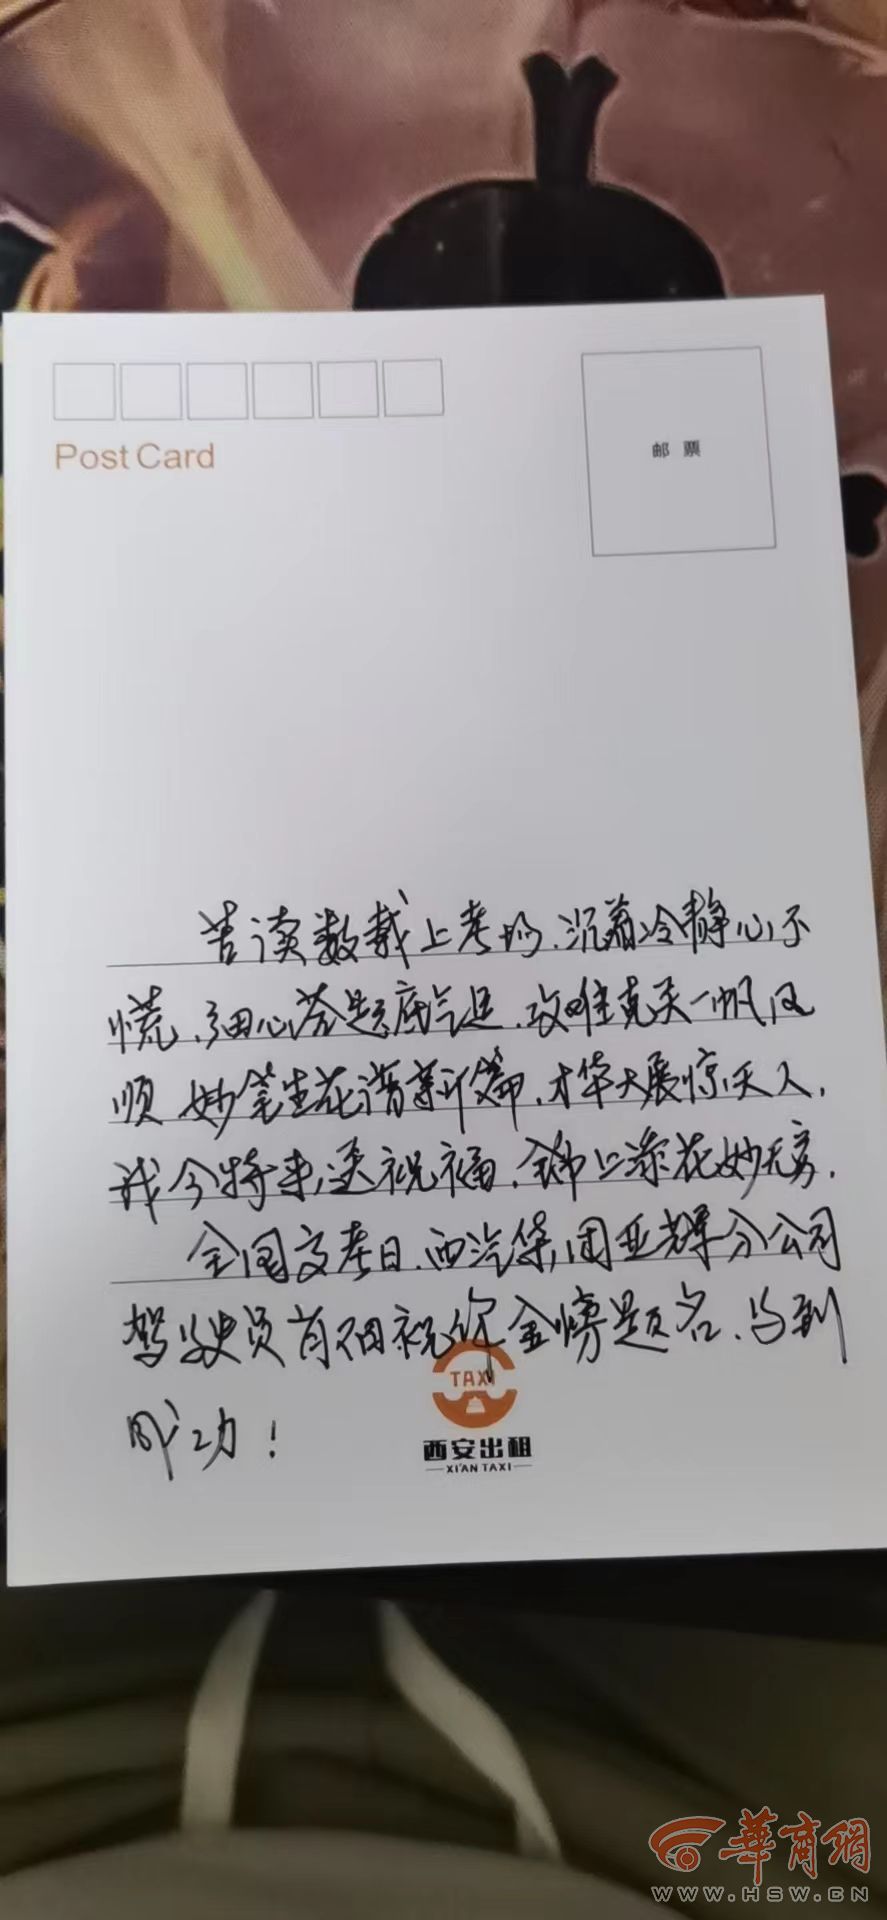 Post Card
邮 票
苦读数载上考场、沉着冷静心不
慌、细心答题底气足、攻难克关一帆风
顺 妙笔生花谱新篇、才华大展惊天人、
我今特来送祝福、锦上添花妙无穷、
全国高考日、西汽集团亚辉分公司
驾驶员肖 祝你金榜题名、马到
成功！
TAXI
西安出租
XI'AN TAXI
華商網
WWW.HSW.CN